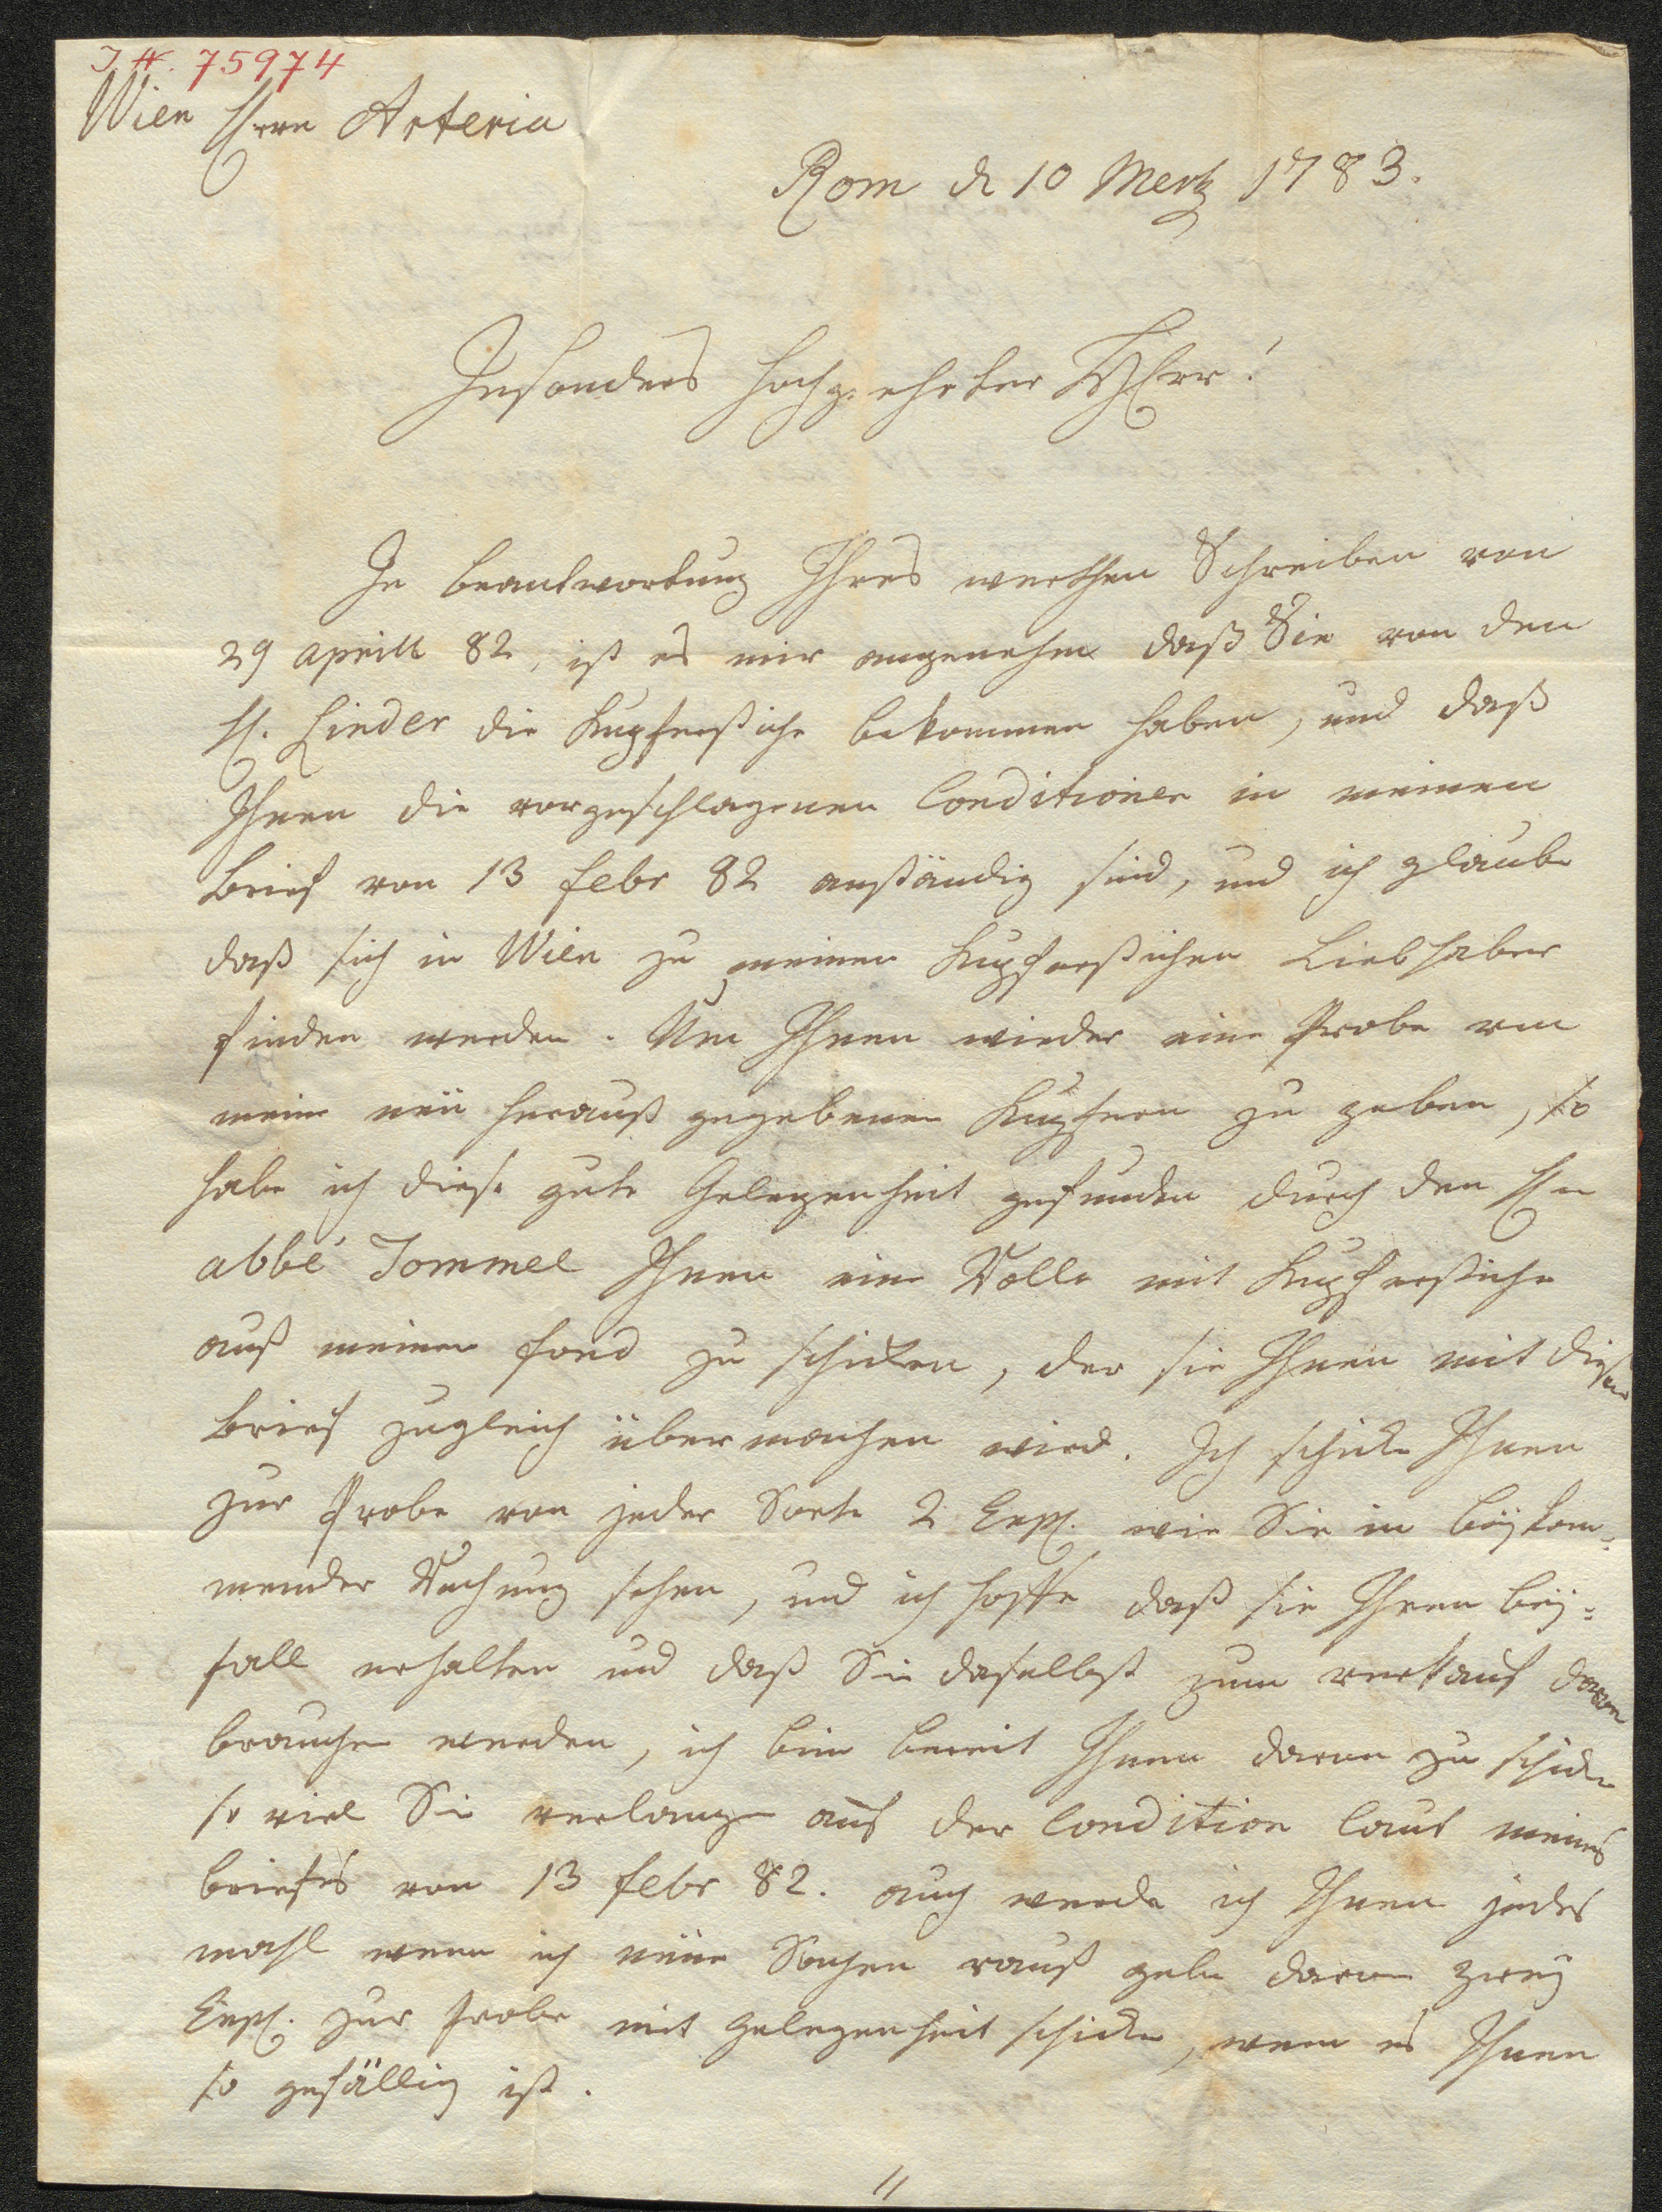 J.N. 75974
Wien Herrn Arteria
Rom d 10 Mertz 1783.
Insonders hochgeehrter Herr!
In beantwortung Ihres werthen Schreiben von
29 aprill 82, ist es mir angenehm daß Sie von den
H. Linder die Kupferstiche bekommen haben, und daß
Ihnen die vorgeschlagenen Conditionen in meinen
brief von 13 febr 82 anständig sind, und ich glaube
daß sich in Wien zu meinen Kupferstichen Liebhaber
finden werden. Um Ihnen wieder eine Probe von
meine neü herauß gegebenen Kupfern zu geben, so
habe ich diese gute Gelegenheit gefunden durch den Hn
abbé Tommel Ihnen eine Rolle mit Kupferstiche
auß meinen fond zu schicken, der sie Ihnen mit diesen
brief zugleich übermachen wird. Ich schicke Ihnen
zur Probe von jeder Sorte 2 Exp. wie Sie in beÿkom=
mender Rechnung sehen, und ich hoffe daß sie Ihren beÿ=
fall erhalten und daß Sie daselbst zum verkauf davon
brauchen werden, ich bin bereit Ihnen davon zu schicken
so viel Sie verlangen auf der Condition laut meines
briefes von 13 febr 82. auch werde ich Ihnen jedes
mahl wenn ich neüe Sachen rauß gebe davon zweÿ
Exp. zur Probe mit Gelegenheit schicken, wenn es Ihnen
so gefällig ist.